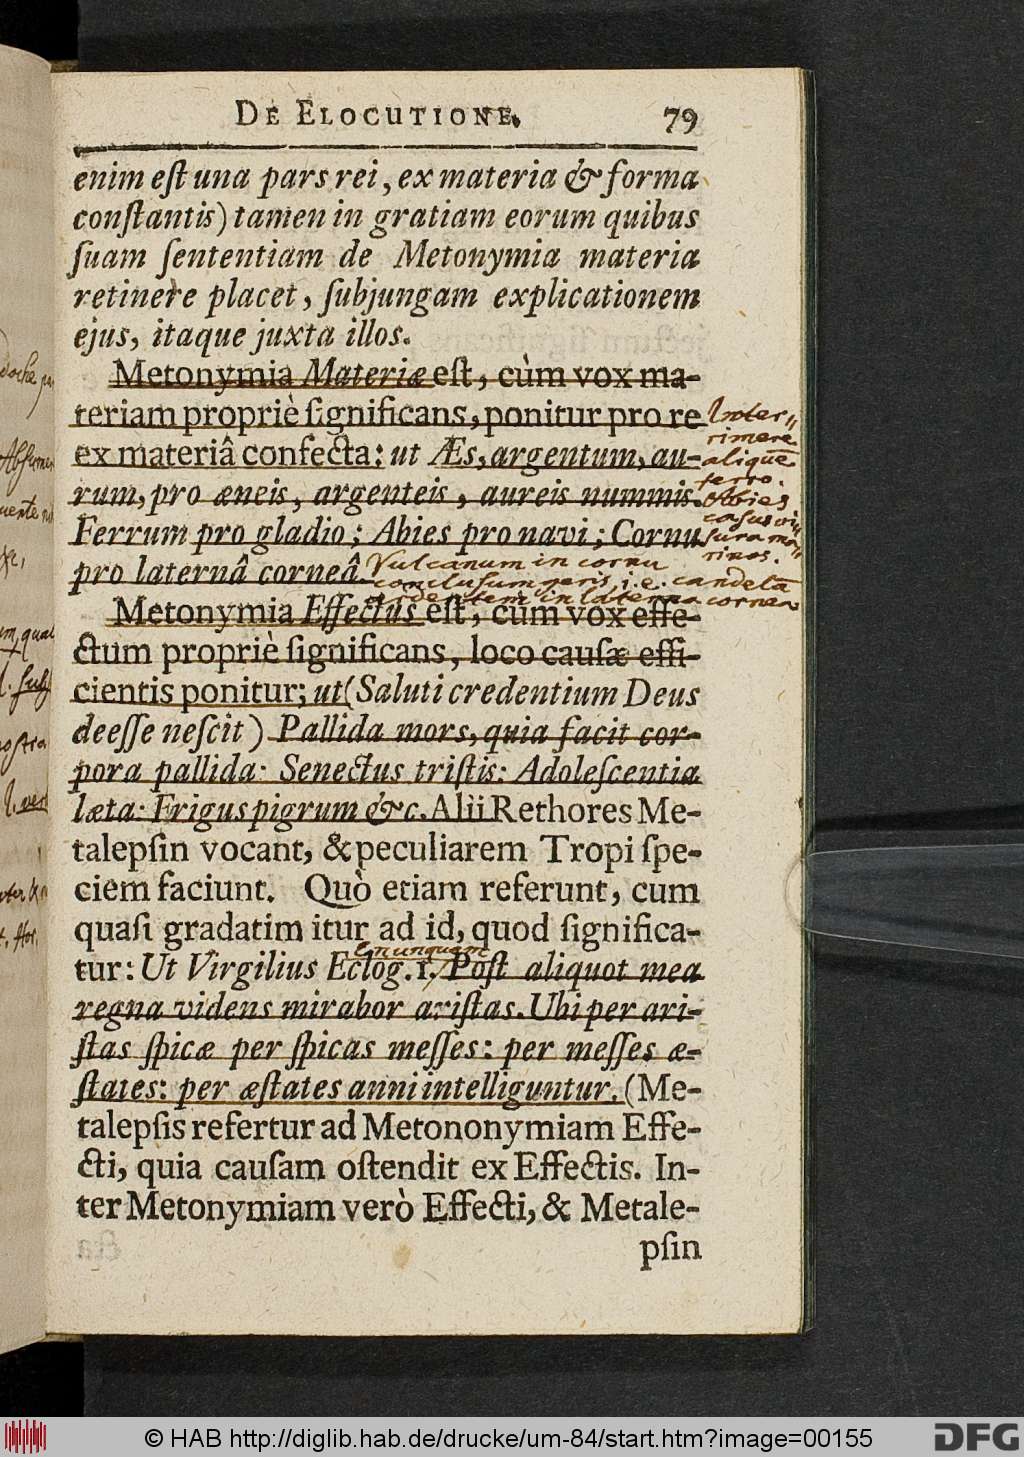 DE ELOCUTIONE. 79
enim eſt una pars rei, ex materia & forma
conſtantis) tamen in gratiam eorum quibus
ſuam ſententiam de Metonymia materia
retinere placet, ſubjungam explicationem
ejus, itaque juxta illos.
Metonymia Materiæ eſt, cùm vox ma-
teriam propriè ſignificans, ponitur pro re
ex materiâ confecta: ut Æs, argentum, au-
rum, pro æneis, argenteis, aureis nummis.
Ferrum pro gladio; Abies pro navi; Cornu
pro laternâ corneâ.
Inter-
rimere
aliquē
ferro.
Abies
casus vi
sura ma
rinos.
Vulcanum in cornu
conclusum geris, i. e. candelā
ardentem in laterna cornea
Metonymia Effectus eſt, cùm vox effe-
ctum propriè ſignificans, loco cauſæ effi-
cientis ponitur; ut (Saluti credentium Deus
deeſſe neſcit) Pallida mors, quia facit cor-
pora pallida: Senectus triſtis: Adoleſcentia
læta: Frigus pigrum &c. Alii Rethores Me-
talepſin vocant, & peculiarem Tropi ſpe-
ciem faciunt. Quò etiam referunt, cum
quaſi gradatim itur ad id, quod ſignifica-
tur: Ut Virgilius Eclog. 1. Poſt aliquot mea
regna videns mirabor ariſtas. Ubi per ari-
ſtas ſpicæ per ſpicas meſſes: per meſſes æ-
ſtates: per æſtates anni intelliguntur. (Me-
talepſis refertur ad Metononymiam Effe-
cti, quia cauſam oſtendit ex Effectis. In-
ter Metonymiam verò Effecti, & Metale-
pſin
© HAB http://diglib.hab.de/drucke/um-84/start.htm?image=00155
DFG